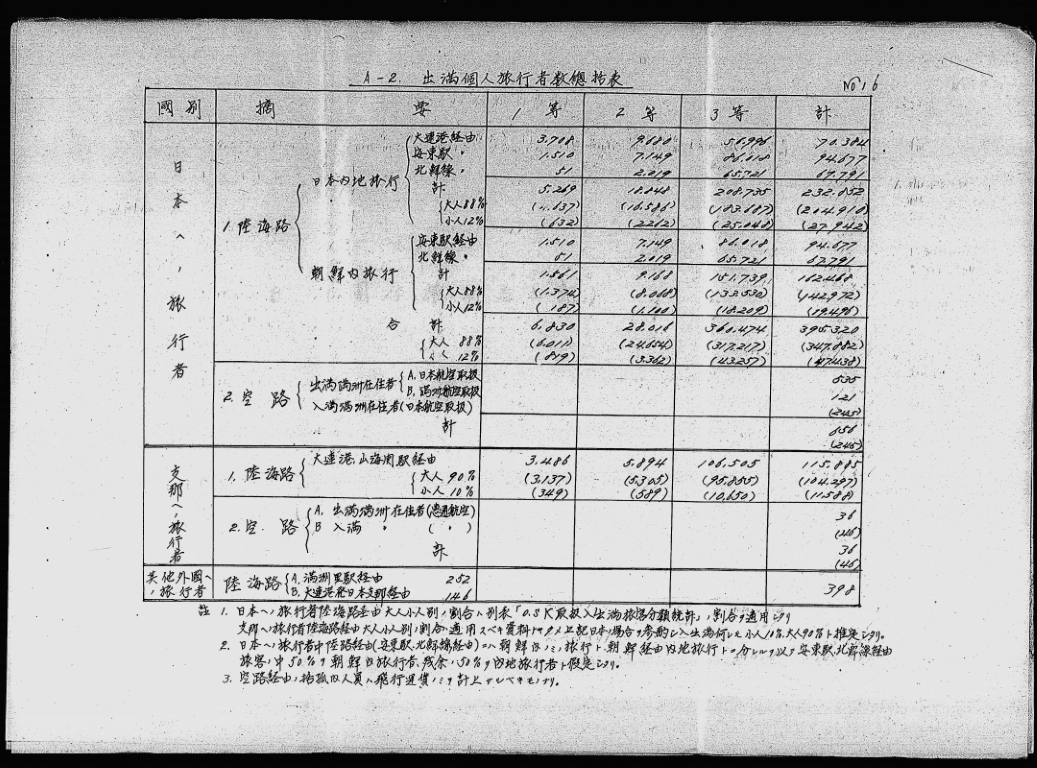 A-2. 出満個人旅行者数總括表
No 16
國別 摘要 1等 2等 3等 計
日本ヘノ旅行者
1. 陸海路
日本内地旅行
大連港経由 3.708 9.680 56.996 70.384
安東駅 〃 1.510 7.149 86.018 94.677
北鮮線 〃 51 2.019 65.721 67.791
計 5.269 18.848 208.735 232.852
大人88% (4.637) (16.586) (183.687) (204.910)
小人12% (632) (2262) (25.048) (27.942)
朝鮮内旅行
安東駅経由 1.510 7.149 86.018 94.677
北鮮線 〃 51 2.019 65.721 67.791
計 1.561 9.168 151.739 162.468
大人88% (1.374) (8.068) (133.530) (142.972)
小人12% (187) (1.100) (18.209) (19.496)
合計 6.830 28.016 360.474 395.320
大人 88% (6.011) (24.654) (317.217) (347.882)
小人 12% (819) (3362) (43257) (47438)
2. 空路
出満満洲在住者 A. 日本航空取扱 535
B. 満洲航空取扱 121
入満満洲在住者(日本航空取扱) (245)
計 656
(245)
支那ヘノ旅行者
1. 陸海路
大連港.山海関駅経由 3.486 5.894 106.505 115.885
大人 90% (3.137) (5.305) (95.855) (104.297)
小人 10% (349) (589) (10.650) (11.588)
2. 空路
A. 出満満洲在住者(恵通航空) 36
B 入満 〃 ( 〃 ) (46)
計 36
(46)
其他外國ヘノ旅行者
陸海路 A. 満洲里駅経由 252 398
B. 大連港発日本支那経由 146
註 1. 日本ヘノ旅行者陸海路経由大人小人別ノ割合ハ別表「O.S.K取扱入出満旅客分類統計」ノ割合ヲ適用セリ
支那ヘノ旅行者陸海路経由大人小人別ノ割合ハ適用スベキ資料ナキタメ上記日本ノ場合ヲ参酌シ入出満何レモ小人10%大人90%ト推定セリ.
2. 日本ヘノ旅行者中陸海路経由(安東駅.北鮮線経由)ニハ朝鮮内ノミノ旅行ト朝鮮経由内地旅行トヲ分シ以テ安東駅.北鮮線経由
旅客ノ中50%ヲ朝鮮内旅行者.残余ノ50%ヲ内地旅行者ト假定セリ.
3. 空路経由ノ括弧内人員ハ飛行運賃ノミヲ計上スベキモノナリ.